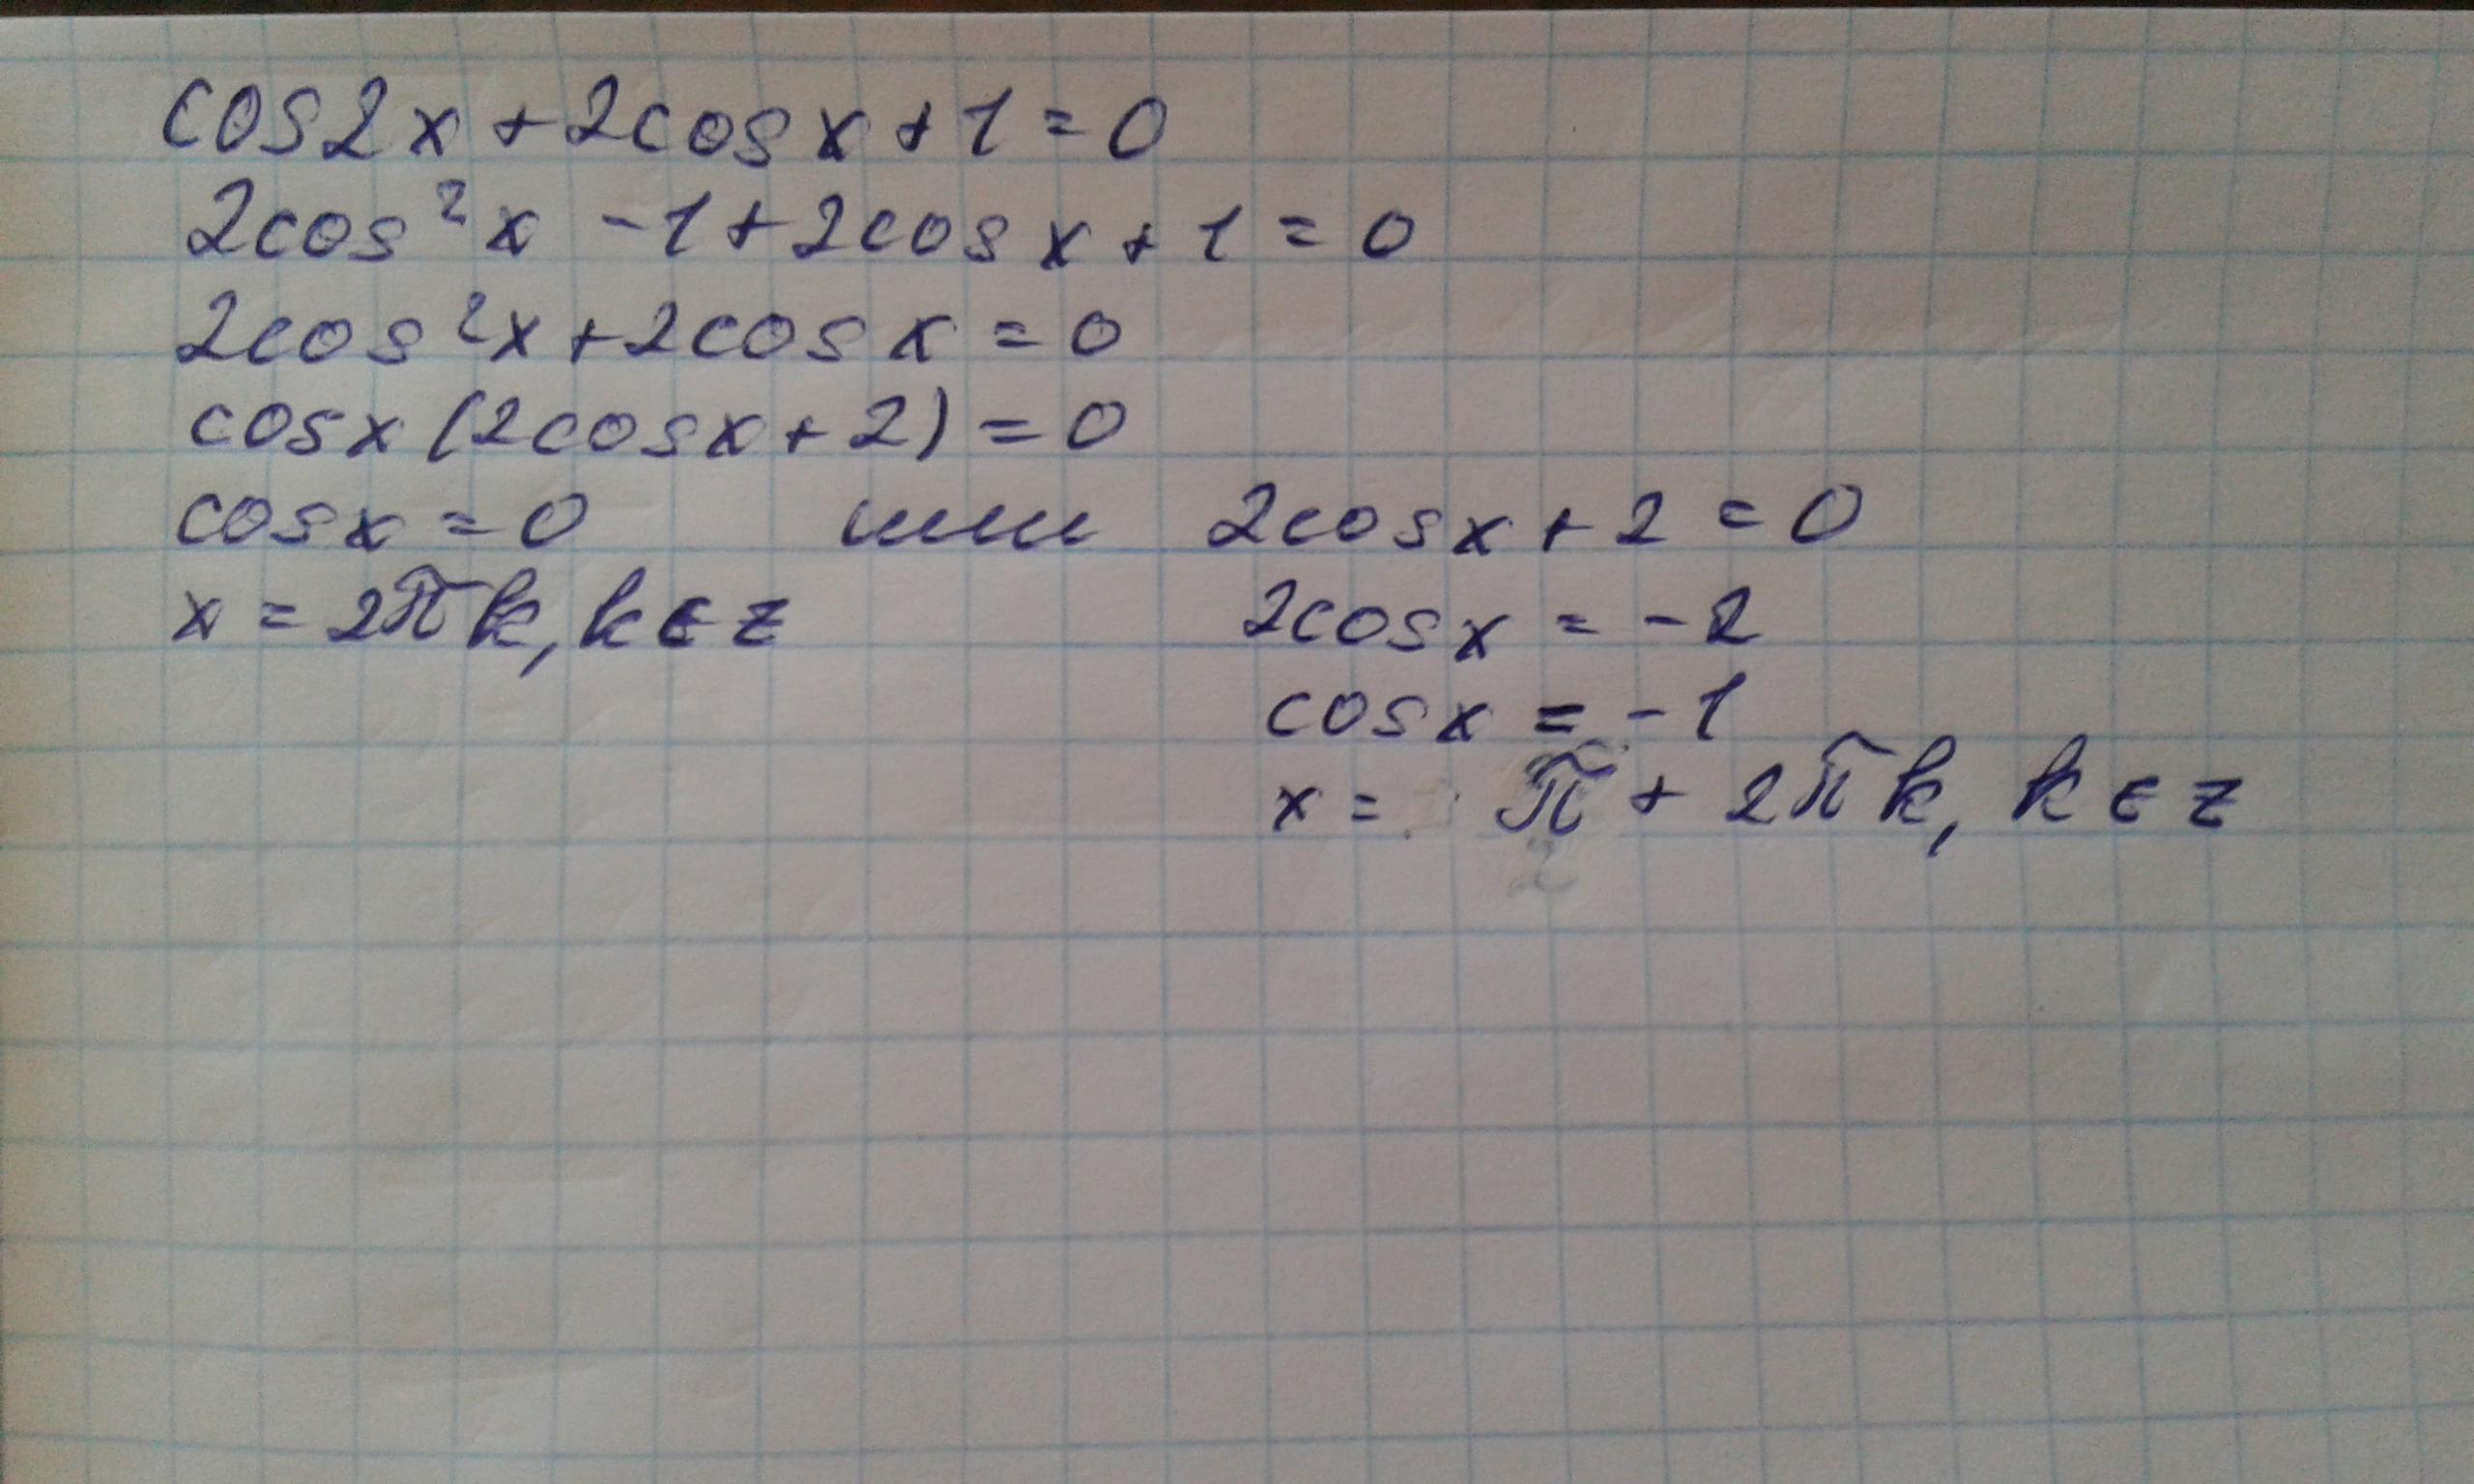 cos2x + 2cosx + 1 = 0
2cos²x - 1 + 2cosx + 1 = 0
2cos²x + 2cosx = 0
cosx (2cosx + 2) = 0
cosx = 0 или 2cosx + 2 = 0
x = 2πk, k ∈ z 2cosx = -2
cosx = -1
x = π + 2πk, k ∈ z